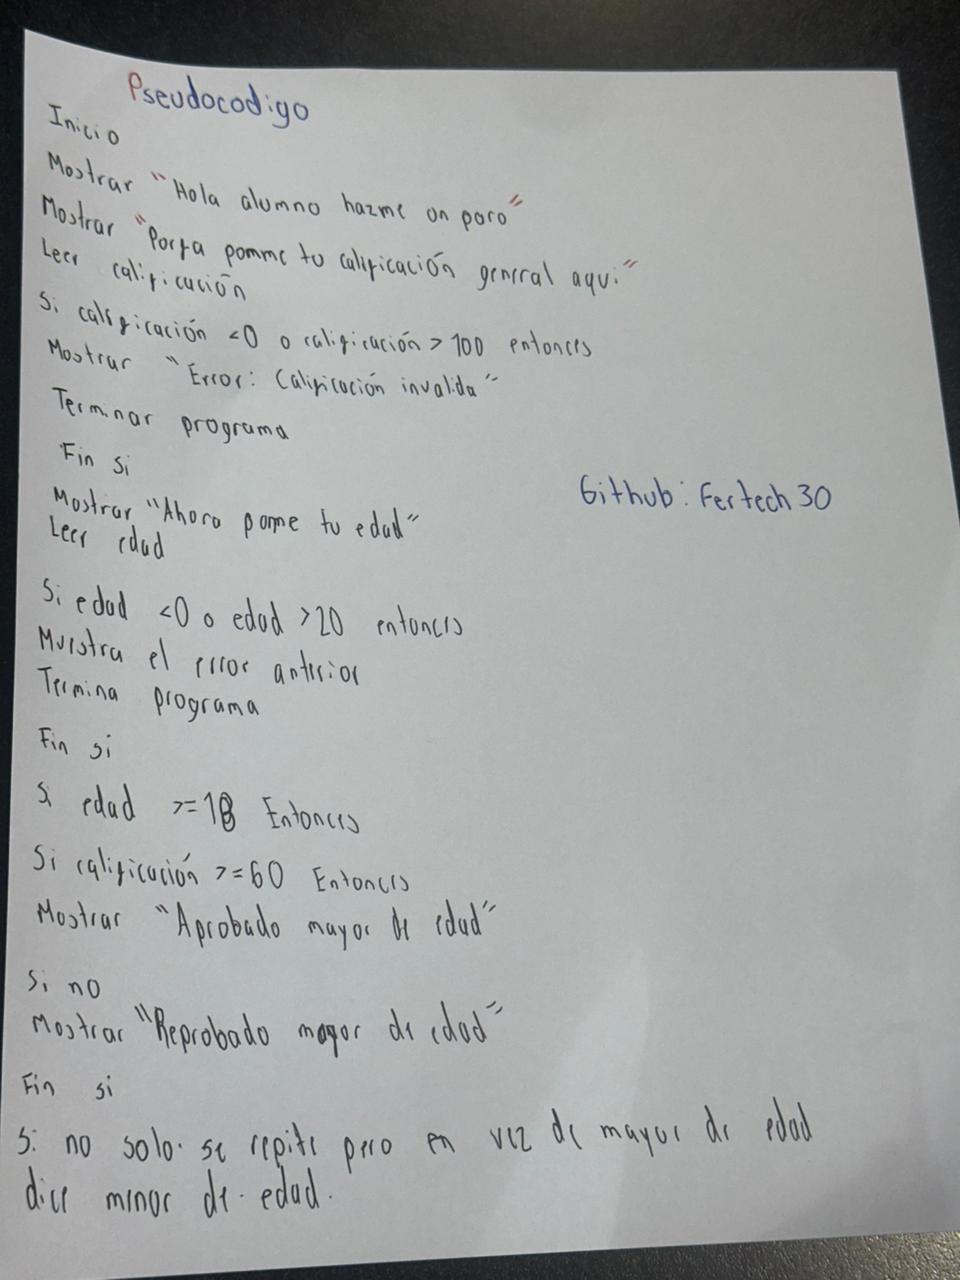 Pseudocodigo
Inicio
Mostrar "Hola alumno hazme un paro"
Mostrar "Porfa pomme tu calificación general aqui"
Leer calificación
Si calificación <0 o calificación > 100 entonces
Mostrar "Error: Calificación invalida"
Terminar programa
Fin si
Github: Fertech30
Mostrar "Ahora pome tu edad"
Leer edad
Si edad <0 o edad >20 entonces
Muestra el error anterior
Termina programa
Fin si
Si edad >=18 Entonces
Si calificación >=60 Entonces
Mostrar "Aprobado mayor de edad"
Si no
Mostrar "Reprobado mayor de edad"
Fin si
Si no solo se repite pero en vez de mayor de edad
dice minor de edad.